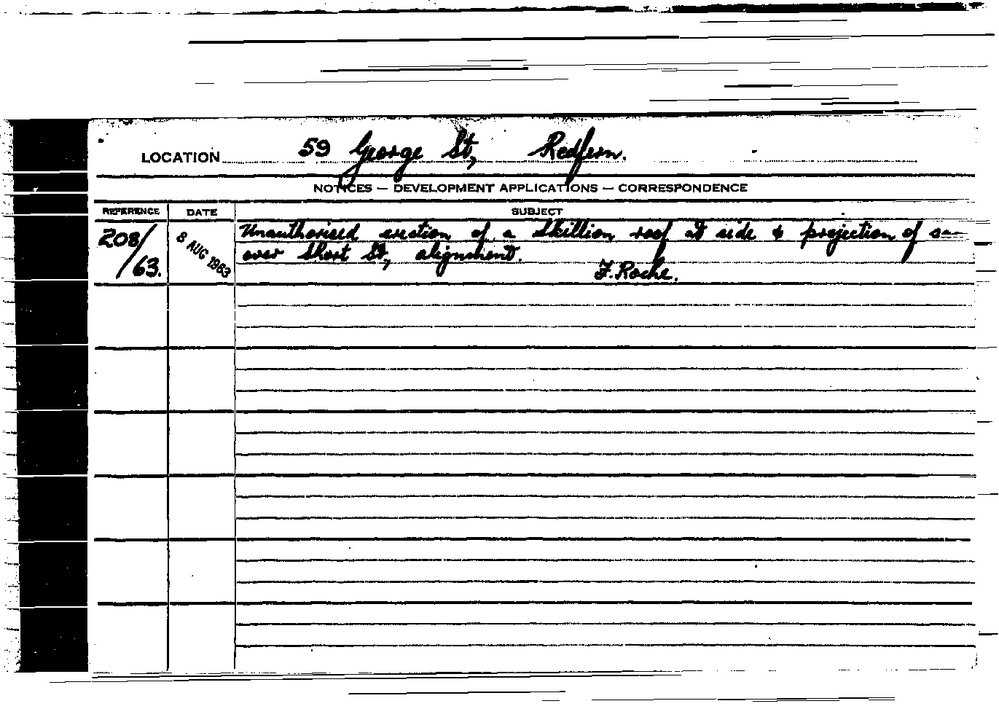 LOCATION 59 George St, Redfern.
NOTICES — DEVELOPMENT APPLICATIONS — CORRESPONDENCE
REFERENCE DATE SUBJECT
208/63. 8 AUG 1963 Unauthorised erection of a skillion roof at side & projection of
over Short St, alignment.
F. Roche.